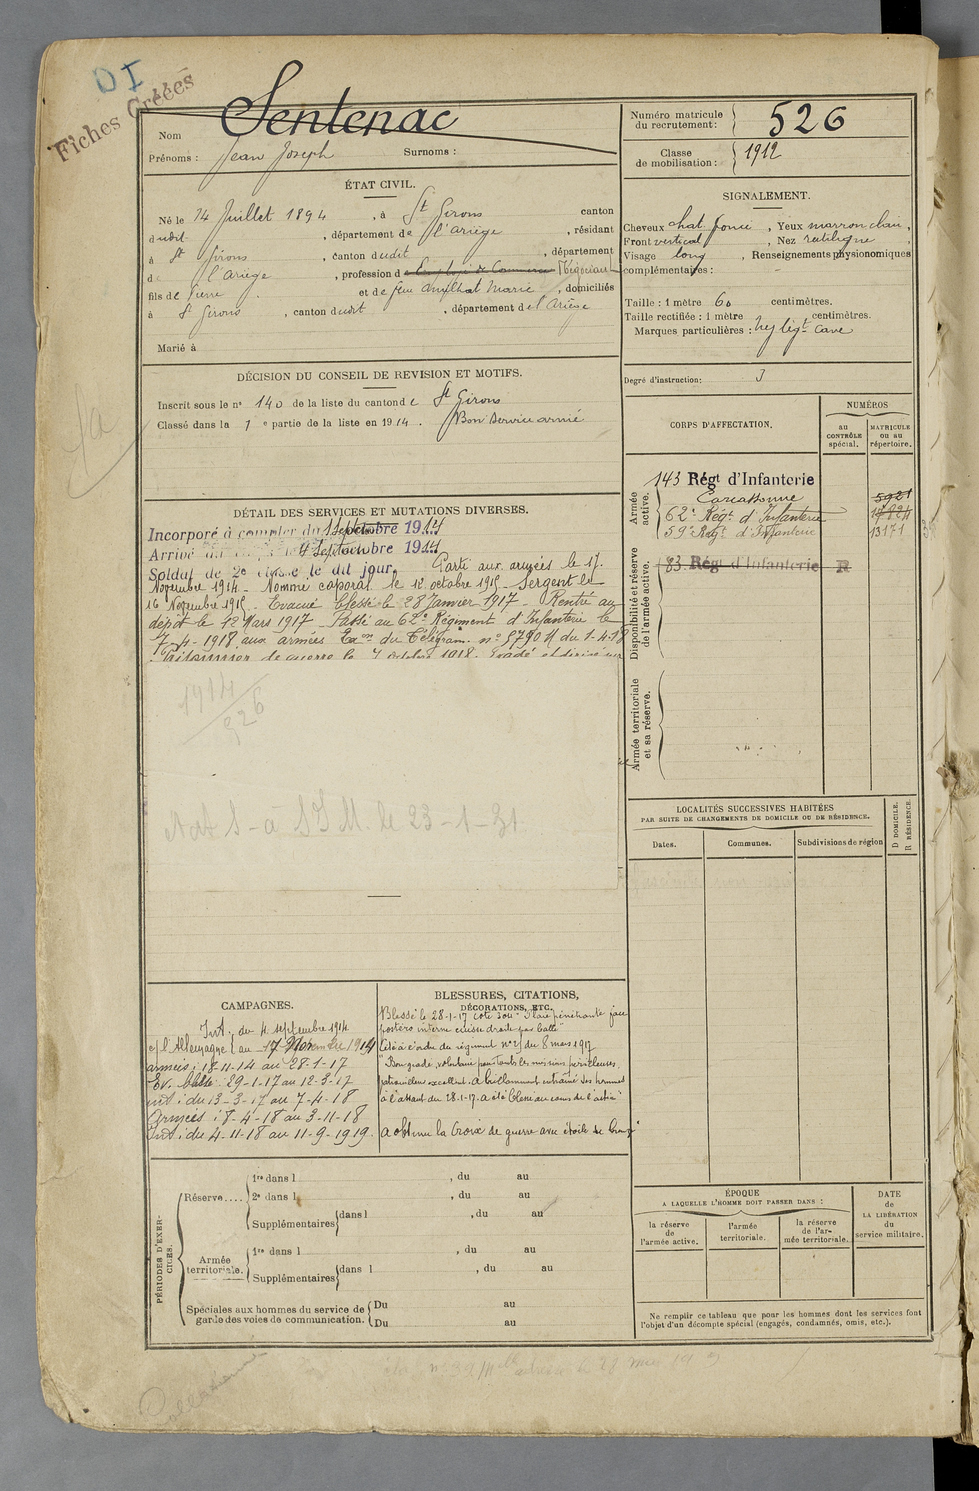 DI
Fiches Créées
Sentenac
Nom
Prénoms : Jean Joseph Surnoms :
Numéro matricule du recrutement : 526
Classe de mobilisation : 1912
ÉTAT CIVIL.
Né le 14 Juillet 1894, à St Girons canton
dudit, département de l'Ariège, résidant
à St Girons, canton dudit, département
de l'Ariège, profession de Employé de Commerce Négociant
fils de Pierre et de feu Marie, domiciliés
à St Girons, canton dudit, département de l'Ariège
Marié à
SIGNALEMENT.
Cheveux chat. foncé, Yeux marron clair,
Front vertical, Nez rectiligne,
Visage long, Renseignements physionomiques
complémentaires :
Taille : 1 mètre 60 centimètres.
Taille rectifiée : 1 mètre centimètres.
Marques particulières : nez légt cave
Degré d'instruction : 3
DÉCISION DU CONSEIL DE REVISION ET MOTIFS.
Inscrit sous le n° 140 de la liste du canton de St Girons
Classé dans la 1e partie de la liste en 1914. Bon service armé
CORPS D'AFFECTATION.
NUMÉROS
au CONTRÔLE spécial.
MATRICULE ou au répertoire.
Armée active.
143 Régt d'Infanterie
Carcassonne 5921
62e Régt d'Infanterie 17824
59e Régt d'Infanterie 13171
Disponibilité et réserve de l'armée active.
83 Régt d'Infanterie R
Armée territoriale et sa réserve.
DÉTAIL DES SERVICES ET MUTATIONS DIVERSES.
Incorporé à compter du 1 Septembre 1914
Arrivé au corps le 4 Septembre 1914
Soldat de 2e classe le dit jour. Parti aux armées le 17
Novembre 1914 - Nommé caporal le 12 octobre 1915 - Sergent le
16 Novembre 1915 - Evacué blessé le 28 Janvier 1917 - Rentré au
dépôt le 12 Mars 1917 - Passé au 62e Régiment d'Infanterie le
7-4-1918 aux armées Exon du Télégram. n° 5790 M du 1-4-18
Prisonnier de guerre le 4 octobre 1918. Evadé et dirigé sur
1914/526
Nov S - à St M. le 23-1-31
LOCALITÉS SUCCESSIVES HABITÉES
PAR SUITE DE CHANGEMENTS DE DOMICILE OU DE RÉSIDENCE.
Dates. Communes. Subdivisions de région
D DOMICILE.
R RÉSIDENCE.
CAMPAGNES.
Int. du 4 septembre 1914
c/ l'Allemagne au 17 Novembre 1914
armées : 18-11-14 au 28-1-17
Ev. blessé : 29-1-17 au 12-3-17
int : du 13-3-17 au 7-4-18
Armées : 8-4-18 au 3-11-18
Int : du 4-11-18 au 11-9-1919.
BLESSURES, CITATIONS,
DÉCORATIONS, ETC.
Blessé le 28-1-17 Plaie pénétrante face
postéro interne cuisse droite par balle
Cité à l'ordre du régiment n° du 8 mars 1917
"Bon gradé, volontaire pour toutes les missions périlleuses,
patrouilleur excellent. A brillamment entraîné ses hommes
à l'attaque du 28-1-17. A été blessé au cours de l'action"
A obtenu la Croix de guerre avec étoile de bronze
PÉRIODES D'EXERCICES.
Réserve....
1re dans l , du au
2e dans l , du au
Supplémentaires dans l , du au
Armée territoriale.
1re dans l , du au
Supplémentaires dans l , du au
Spéciales aux hommes du service de garde des voies de communication.
Du au
Du au
ÉPOQUE
A LAQUELLE L'HOMME DOIT PASSER DANS :
la réserve de l'armée active.
l'armée territoriale.
la réserve de l'armée territoriale.
DATE de LA LIBÉRATION du service militaire.
Ne remplir ce tableau que pour les hommes dont les services font
l'objet d'un décompte spécial (engagés, condamnés, omis, etc.).